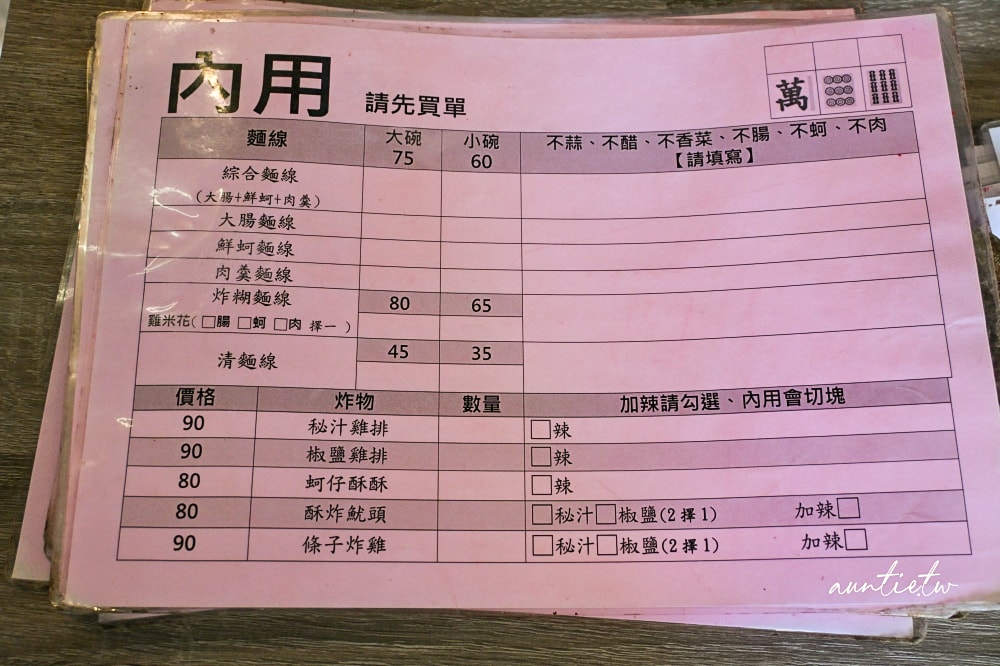 內用 請先買單
萬
麵線 大碗 75 小碗 60 不蒜、不醋、不香菜、不腸、不蚵、不肉【請填寫】
綜合麵線
(大腸+鮮蚵+肉羹)
大腸麵線
鮮蚵麵線
肉羹麵線
炸糊麵線 80 65
雞米花(□腸 □蚵 □肉 擇一)
清麵線 45 35
價格 炸物 數量 加辣請勾選、內用會切塊
90 秘汁雞排 □辣
90 椒鹽雞排 □辣
80 蚵仔酥酥 □辣
80 酥炸魷頭 □秘汁□椒鹽(2擇1) 加辣□
90 條子炸雞 □秘汁□椒鹽(2擇1) 加辣□
auntie.tw